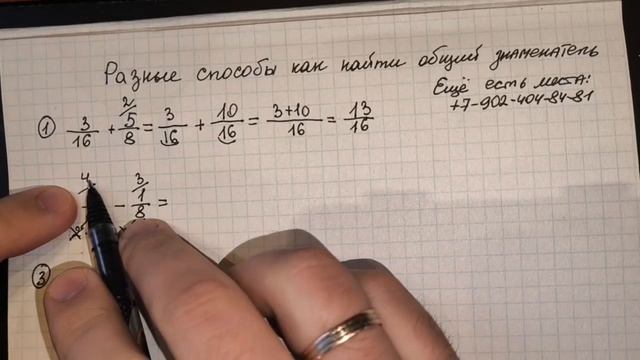 Разные способы как найти общий знаменатель
Ещё есть места:
+7-902-404-84-81
① 3/16 + 5/8 (2) = 3/16 + 10/16 = 3+10/16 = 13/16
4 - 1/8 (3) =
③